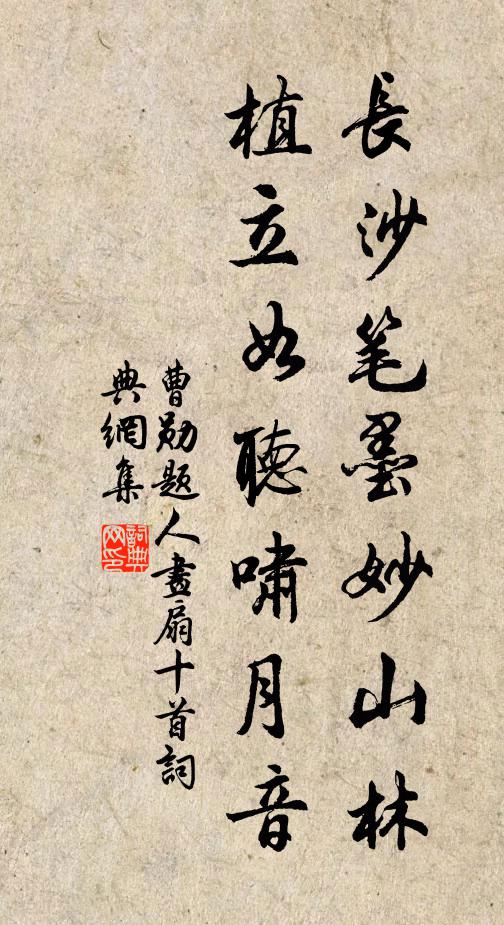 長沙笔墨妙山林
植立如聽嘯月音
曹勛題人畫扇十首詞
典網集
詞典
网印